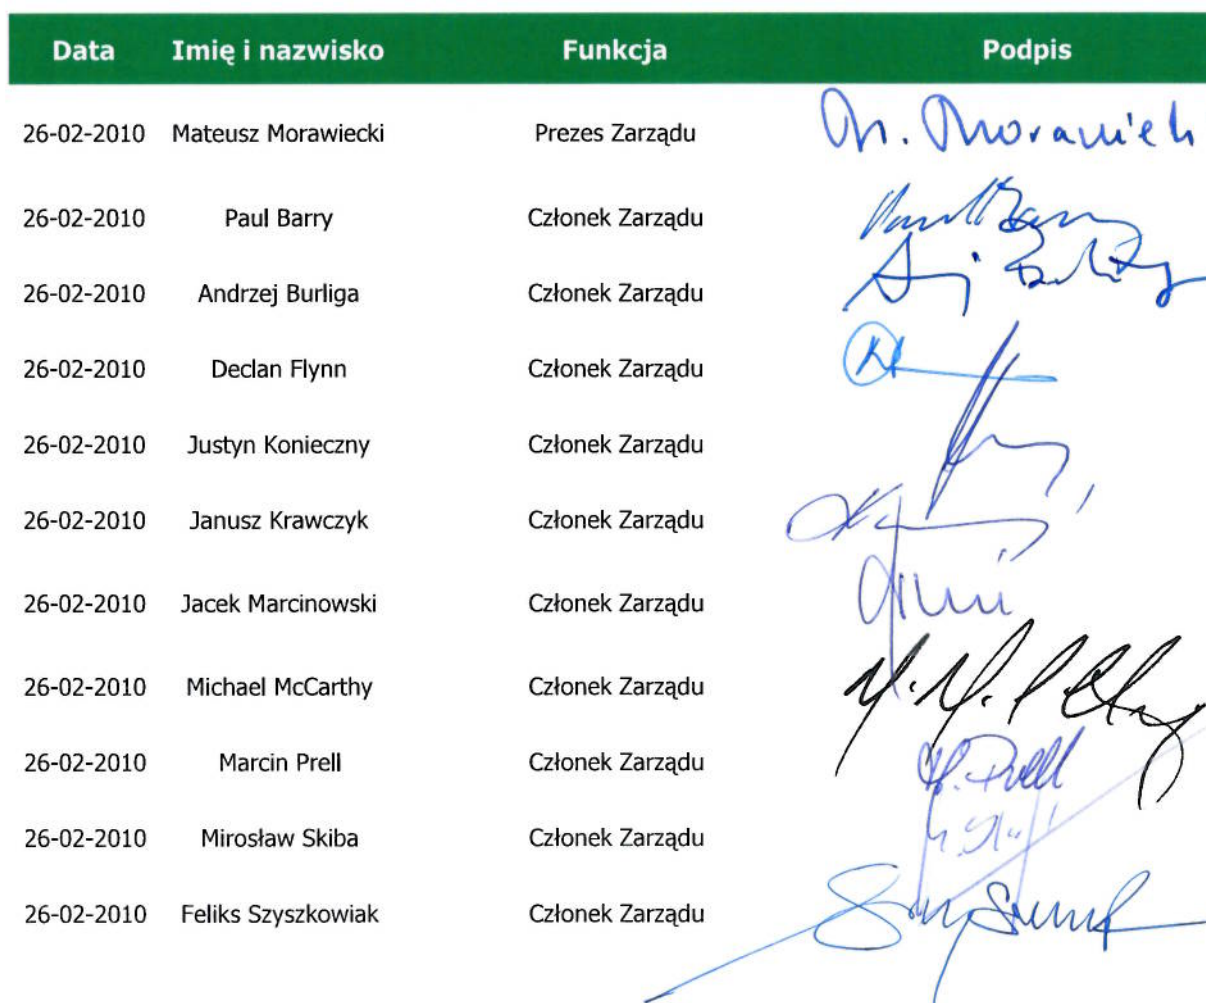 Data Imię i nazwisko Funkcja Podpis
26-02-2010 Mateusz Morawiecki Prezes Zarządu M. Morawiecki
26-02-2010 Paul Barry Członek Zarządu
26-02-2010 Andrzej Burliga Członek Zarządu
26-02-2010 Declan Flynn Członek Zarządu
26-02-2010 Justyn Konieczny Członek Zarządu
26-02-2010 Janusz Krawczyk Członek Zarządu
26-02-2010 Jacek Marcinowski Członek Zarządu
26-02-2010 Michael McCarthy Członek Zarządu
26-02-2010 Marcin Prell Członek Zarządu M. Prell
26-02-2010 Mirosław Skiba Członek Zarządu
26-02-2010 Feliks Szyszkowiak Członek Zarządu